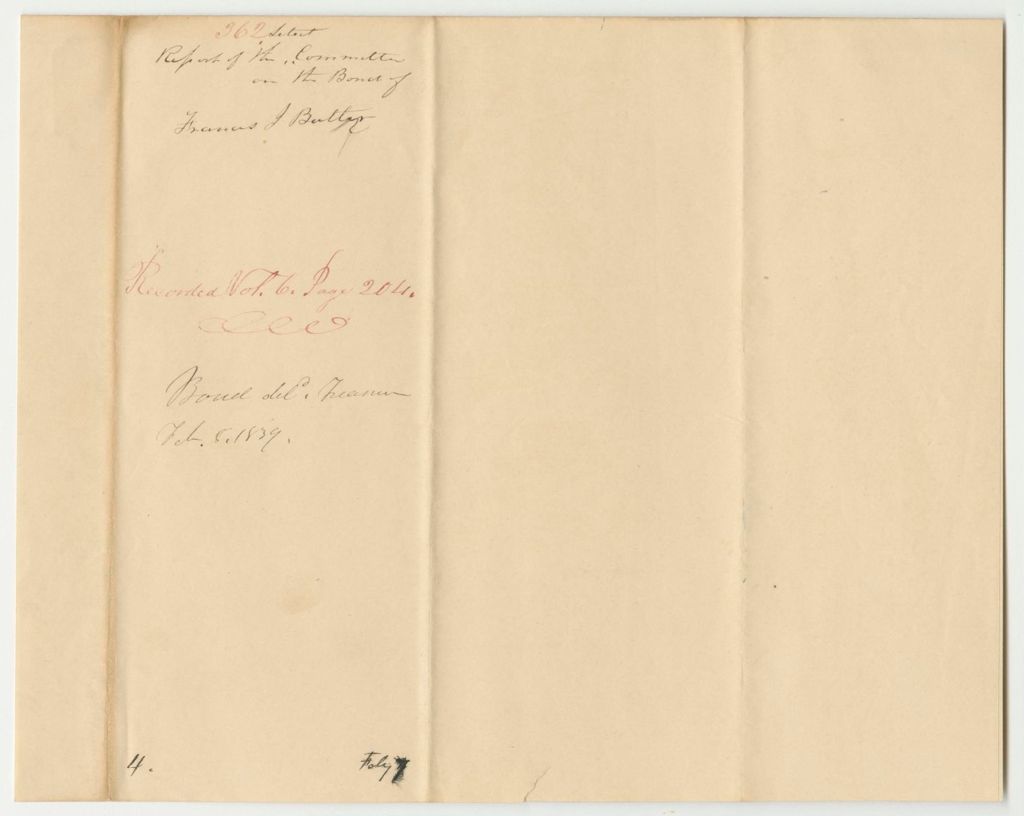 362 Select
Report of the Committee
on the Bond of
Francis J Butler
Recorded Vol. 6. Page 204.
Bond deld. Treasurer
Feb. 8. 1839.
4.
Feby 7